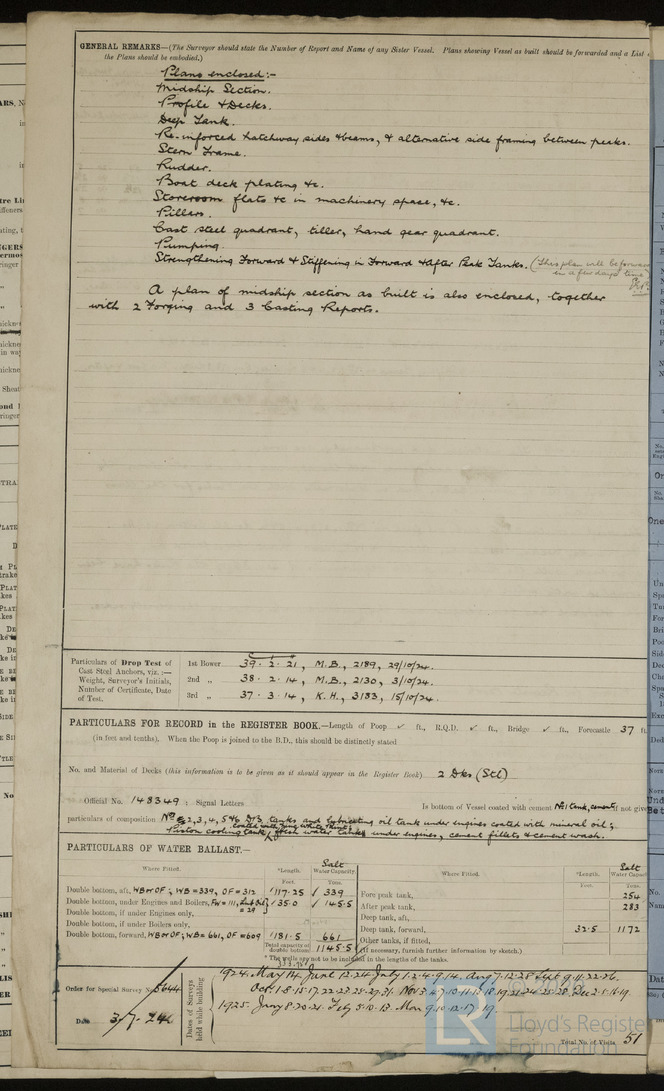 GENERAL REMARKS—(The Surveyor should state the Number of Report and Name of any Sister Vessel. Plans showing Vessel as built should be forwarded and a List
the Plans should be embodied.)
Plans enclosed:-
Midship Section.
Profile & Decks.
Deep Tank.
Re-inforced hatchway sides & beams, & alternative side framing between peaks.
Stern Frame.
Rudder.
Boat deck plating &c.
Storeroom flats &c in machinery space, &c.
Pillars.
Cast steel quadrant, tiller, hand gear quadrant.
Pumping.
Strengthening Forward & Stiffening in Forward & After Peak Tanks. (This plan will be
in a few days time
A plan of midship section as built is also enclosed, together
with 2 Forging and 3 Casting Reports.
Particulars of Drop Test of
Cast Steel Anchors, viz.:—
Weight, Surveyor's Initials,
Number of Certificate, Date
of Test.
1st Bower 39. 2. 21, M.B., 2189, 29/10/24.
2nd „ 38. 2. 14, M.B., 2130, 3/10/24.
3rd „ 37. 3. 14, K.H., 3183, 15/10/24.
PARTICULARS FOR RECORD in the REGISTER BOOK.—Length of Poop ft., R.Q.D. ft., Bridge ft., Forecastle 37 ft.
(in feet and tenths). When the Poop is joined to the B.D., this should be distinctly stated
No. and Material of Decks (this information is to be given as it should appear in the Register Book) 2 Dks (Stl)
Official No. 148349 ; Signal Letters Is bottom of Vessel coated with cement No 1 tank, cement, if not give
particulars of composition Nos 2, 3, 4, 5 & 6 D.B. tanks and lubricating oil tank under engines coated with mineral oil;
Piston cooling tank, fresh water tanks under engines, cement fillets & cement wash.
PARTICULARS OF WATER BALLAST.—
Where Fitted. *Length. Salt Water Capacity. Where Fitted. *Length. Salt Water
Feet. Tons. Feet. Tons.
Double bottom, aft, WB or OF; WB=339, OF=312 117.25 339 Fore peak tank, 254
Double bottom, under Engines and Boilers, FW=111, = 29 35.0 145.5 After peak tank, 283
Double bottom, if under Engines only, Deep tank, aft,
Double bottom, if under Boilers only, Deep tank, forward, 32.5 1172
Double bottom, forward, WB or OF; WB=661, OF=609 181.5 661 Other tanks, if fitted,
Total capacity of double bottom 1145.5 (If necessary, furnish further information by sketch.)
* The wells are not to be included in the lengths of the tanks.
Order for Special Survey No. 5644
Date 3/7/24
Dates of Surveys held while building
1924. May 14. June 12.24. July 1.2.4.9.14. Aug 7.12.28. Sept 9.11.22.26.
Oct 1.8.15.17.22.23.25.29.31. Nov 3.4.7.10.11.13.18.19.21.24.25.28. Dec 2.5.16.19
1925. Jany 8.20.21. Feby 5.10.13. Mar 9.10.12.17.19.
Total No. of Visits 51
Lloyd's Register
Foundation